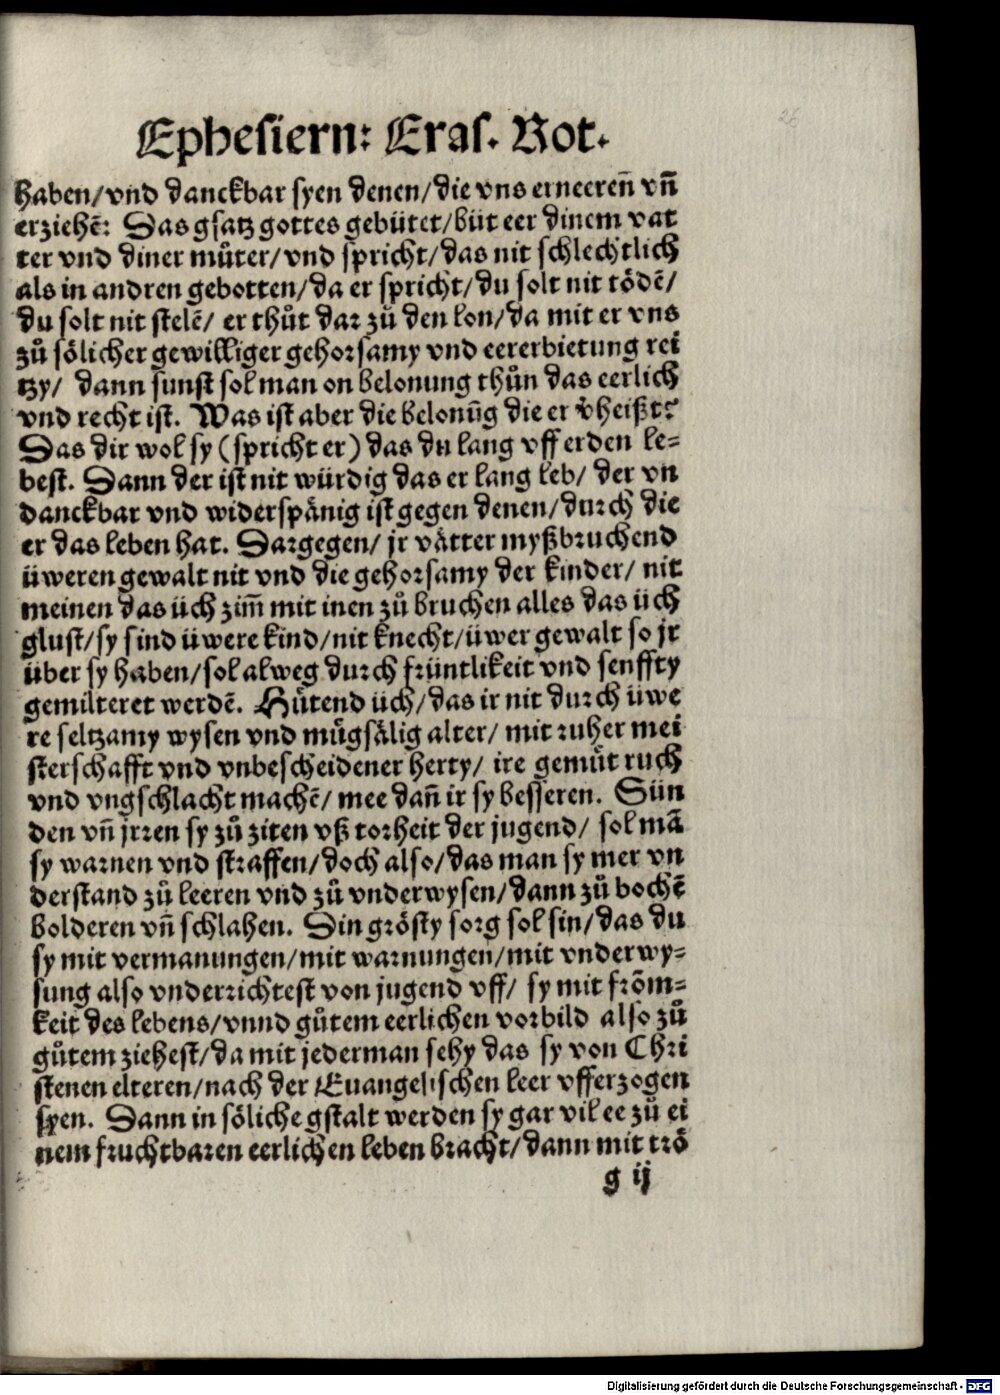 Ephesiern: Eras. Rot.
26
haben/vnd danckbar syen denen/die vns erneereñ vñ
erziehẽ: Das gsatz gottes gebütet/büt eer dinem vat
ter vnd diner müter/vnd spricht/das nit schlechtlich
als in andren gebotten/da er spricht/du solt nit tödẽ/
du solt nit stelẽ/ er thůt dar zů den lon/da mit er vns
zů sölicher gewilliger gehorsamy vnd eererbietung rei
tzy/ dann sunst sol man on belonung thůn das eerlich
vnd recht ist. Was ist aber die belonũg die er v̊heißt?
Das dir wol sy (spricht er) das du lang vff erden le=
best. Dann der ist nit würdig das er lang leb/ der vn
danckbar vnd widerspänig ist gegen denen/durch die
er das leben hat. Dargegen/ jr vätter myßbruchend
üweren gewalt nit vnd die gehorsamy der kinder/ nit
meinen das üch zim̃ mit inen zů bruchen alles das üch
glust/sy sind üwere kind/nit knecht/üwer gewalt so jr
über sy haben/sol alweg durch früntlikeit vnd senffty
gemilteret werdẽ. Hütend üch/das ir nit durch üwe
re seltzamy wysen vnd mügsälig alter/ mit ruher mei
sterschafft vnd vnbescheidener herty/ ire gemüt ruch
vnd vngschlacht machẽ/ mee dañ ir sy besseren. Sün
den vñ jrren sy zů ziten vß torheit der jugend/ sol mã
sy warnen vnd straffen/doch also/das man sy mer vn
derstand zů leeren vnd zů vnderwysen/dann zů bochẽ
bolderen vñ schlahen. Din grösty sorg sol sin/das du
sy mit vermanungen/mit warnungen/mit vnderwy=
sung also vnderrichtest von jugend vff/ sy mit fröm=
keit des lebens/vnnd gůtem eerlichen vorbild also zů
gůtem ziehest/da mit jederman sehy das sy von Chri
stenen elteren/nach der Euangelischen leer vfferzogen
syen. Dann in söliche gstalt werden sy gar vil ee zů ei
nem fruchtbaren eerlichen leben bracht/dann mit trö
g ij
Digitalisierung gefördert durch die Deutsche Forschungsgemeinschaft - DFG